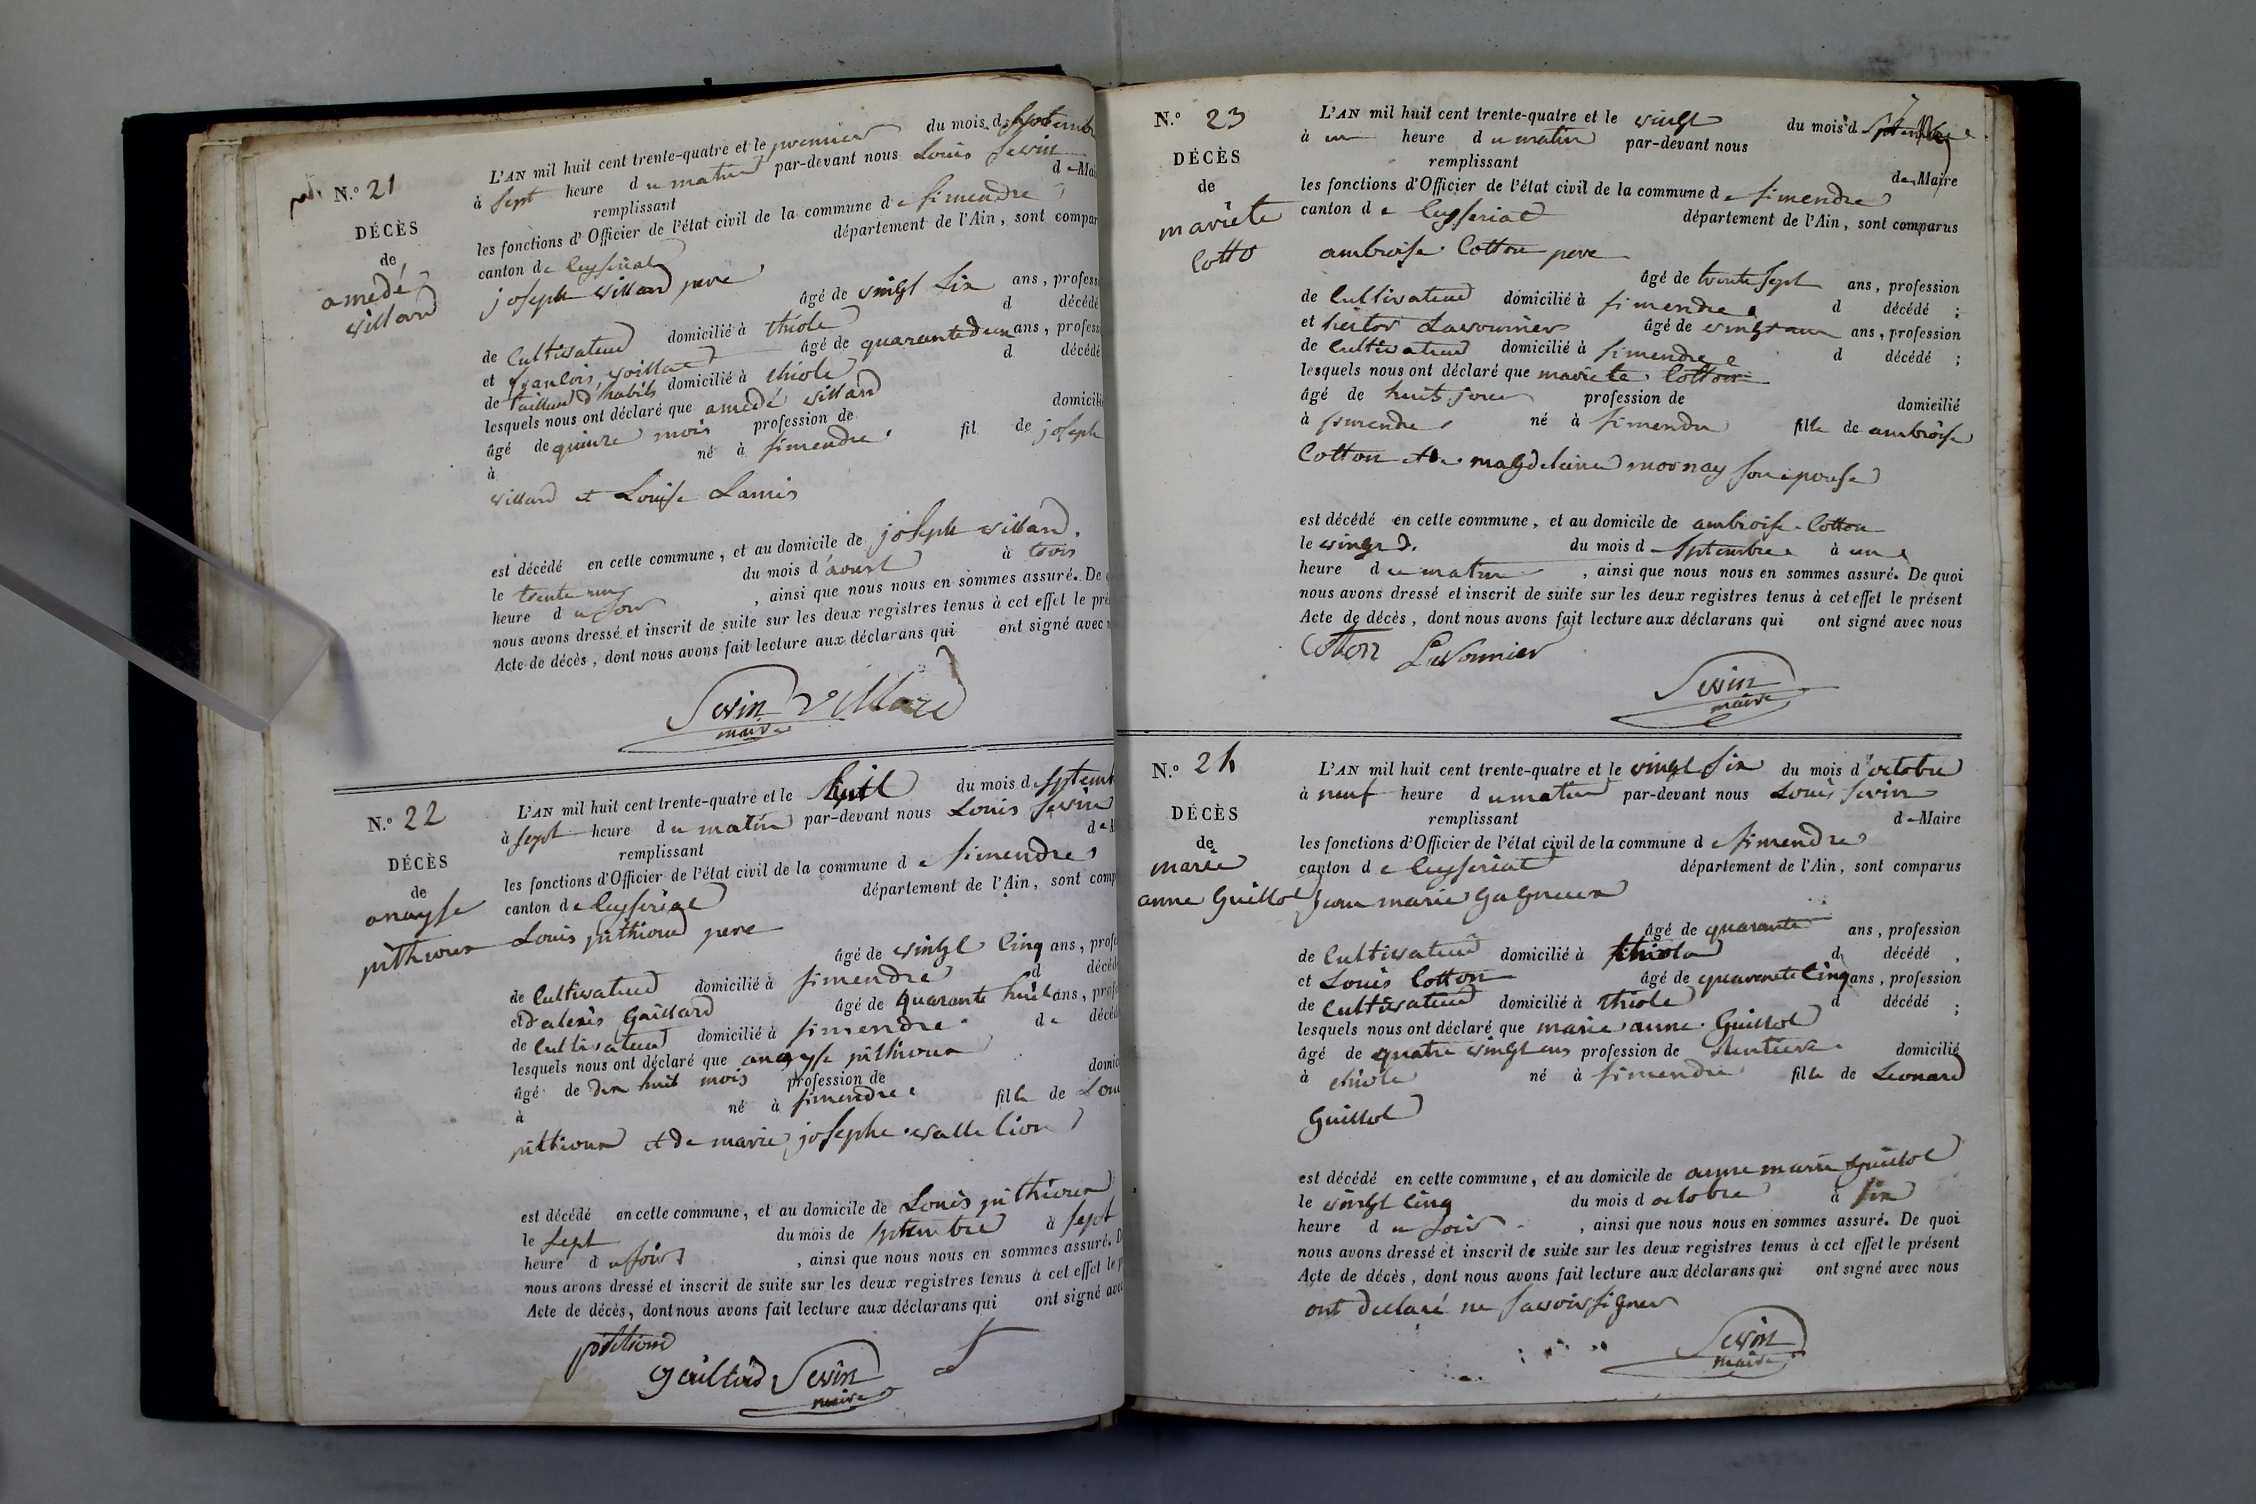 N.° 21
DÉCÈS
de
amedé
villard
L'AN mil huit cent trente-quatre et le premier du mois de septembr
à sept heure du matin par-devant nous Louis Sevin
remplissant de Mai
les fonctions d'Officier de l'état civil de la commune de simendre
canton de Ceyseriat département de l'Ain, sont compar
joseph villard pere
âgé de vingt six ans, profess
de Cultivateur domicilié à thiole d décédé
et françois voillat âgé de quarante deux ans, profess
de tailleur d'habits domicilié à thiole d décédé
lesquels nous ont déclaré que amedé villard
âgé de quinze mois profession de domicilié
à né à simendre fil de joseph
villard et Louise Lamis
est décédé en cette commune, et au domicile de joseph villard.
le trente un du mois d'aoust à trois
heure du soir , ainsi que nous nous en sommes assuré. De q
nous avons dressé et inscrit de suite sur les deux registres tenus à cet effet le pré
Acte de décès, dont nous avons fait lecture aux déclarans qui ont signé avec n
Sevin villard
maire
N.° 22
DÉCÈS
de
anayse
pithioux
L'AN mil huit cent trente-quatre et le huit du mois de septemb
à sept heure du matin par-devant nous Louis Sevin
remplissant de M
les fonctions d'Officier de l'état civil de la commune de simendre
canton de Ceyseriat département de l'Ain, sont comp
Louis pithioud pere
âgé de vingt cinq ans, profe
de Cultivateur domicilié à simendre d décéd
et d'alexis Gaillard âgé de quarante huit ans, prof
de Cultivateur domicilié à simendre de décéd
lesquels nous ont déclaré que anayse pithioux
âgé de dix huit mois profession de domic
à né à simendre fille de Loui
pithioux et de marie josephe vallelion
est décédé en cette commune, et au domicile de Louis pithioux
le sept du mois de septembre à sept
heure du soir , ainsi que nous nous en sommes assuré. D
nous avons dressé et inscrit de suite sur les deux registres tenus à cet effet le p
Acte de décès, dont nous avons fait lecture aux déclarans qui ont signé avec
pithioud
gaillard Sevin
maire
N.° 23
DÉCÈS
de
mariete
Cotto
L'AN mil huit cent trente-quatre et le vingt du mois d septembre
à un heure du matin par-devant nous
remplissant de Maire
les fonctions d'Officier de l'état civil de la commune de simendre
canton de Ceyseriat département de l'Ain, sont comparus
ambroise Cotton pere
âgé de trente sept ans, profession
de Cultivateur domicilié à simendre d décédé ;
et hector Lavounier âgé de vingt un ans, profession
de Cultivateur domicilié à simendre d décédé ;
lesquels nous ont déclaré que mariete Cotton
âgé de huit jour profession de domicilié
à simendre né à simendre fille de ambroise
Cotton et de magdelaine mornay son epouse
est décédé en cette commune, et au domicile de ambroise Cotton
le vingt du mois de septembre à une
heure du matin , ainsi que nous nous en sommes assuré. De quoi
nous avons dressé et inscrit de suite sur les deux registres tenus à cet effet le présent
Acte de décès, dont nous avons fait lecture aux déclarans qui ont signé avec nous
Cotton Lavounier
Sevin
maire
N.° 24
DÉCÈS
de
marie
anne Guillot
L'AN mil huit cent trente-quatre et le vingt six du mois d'octobre
à neuf heure du matin par-devant nous Louis Sevin
remplissant de Maire
les fonctions d'Officier de l'état civil de la commune de simendre
canton de Ceyseriat département de l'Ain, sont comparus
jean marie Gagneux
âgé de quarante ans, profession
de Cultivateur domicilié à thiole d décédé ,
et Louis Cotton âgé de quarente cinq ans, profession
de Cultivateur domicilié à thiole d décédé ;
lesquels nous ont déclaré que marie anne Guillot
âgé de quatre vingt ans profession de rentiere domicilié
à thiole né à simendre fille de Leonard
Guillot
est décédé en cette commune, et au domicile de anne marie Guillot
le vingt cinq du mois d octobre à six
heure du soir , ainsi que nous nous en sommes assuré. De quoi
nous avons dressé et inscrit de suite sur les deux registres tenus à cet effet le présent
Acte de décès, dont nous avons fait lecture aux déclarans qui ont signé avec nous
ont declaré ne savoir signer
Sevin
maire